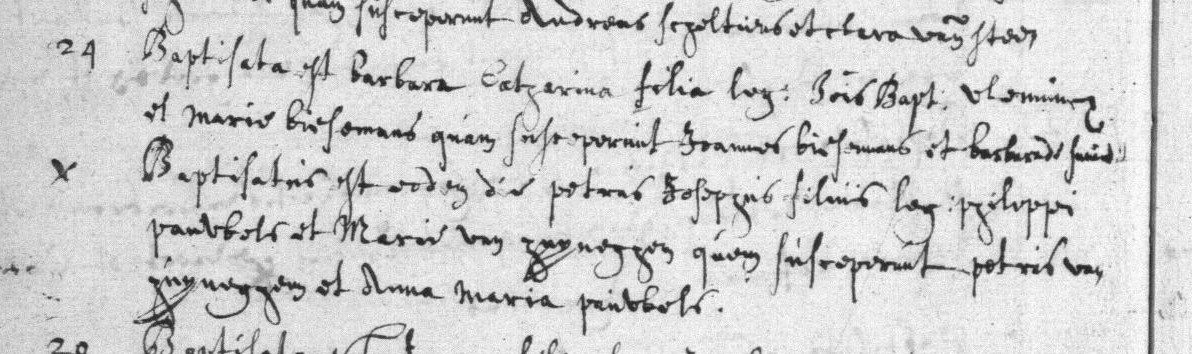 quam susceperunt Andreas scheltiens et clara van steen
24 Baptisata est barbara Catharina filia leg: Jois Bapt. vleminx
et Marie biesemans quam susceperunt Joannes biesemans et barbara de
x Baptisatus est eodem die petrus Josephus filius leg: philippi
pauwels et Marie van huyneghen quem susceperunt petrus van
huyneghem et Anna Maria pauwels.
28 Baptisata est